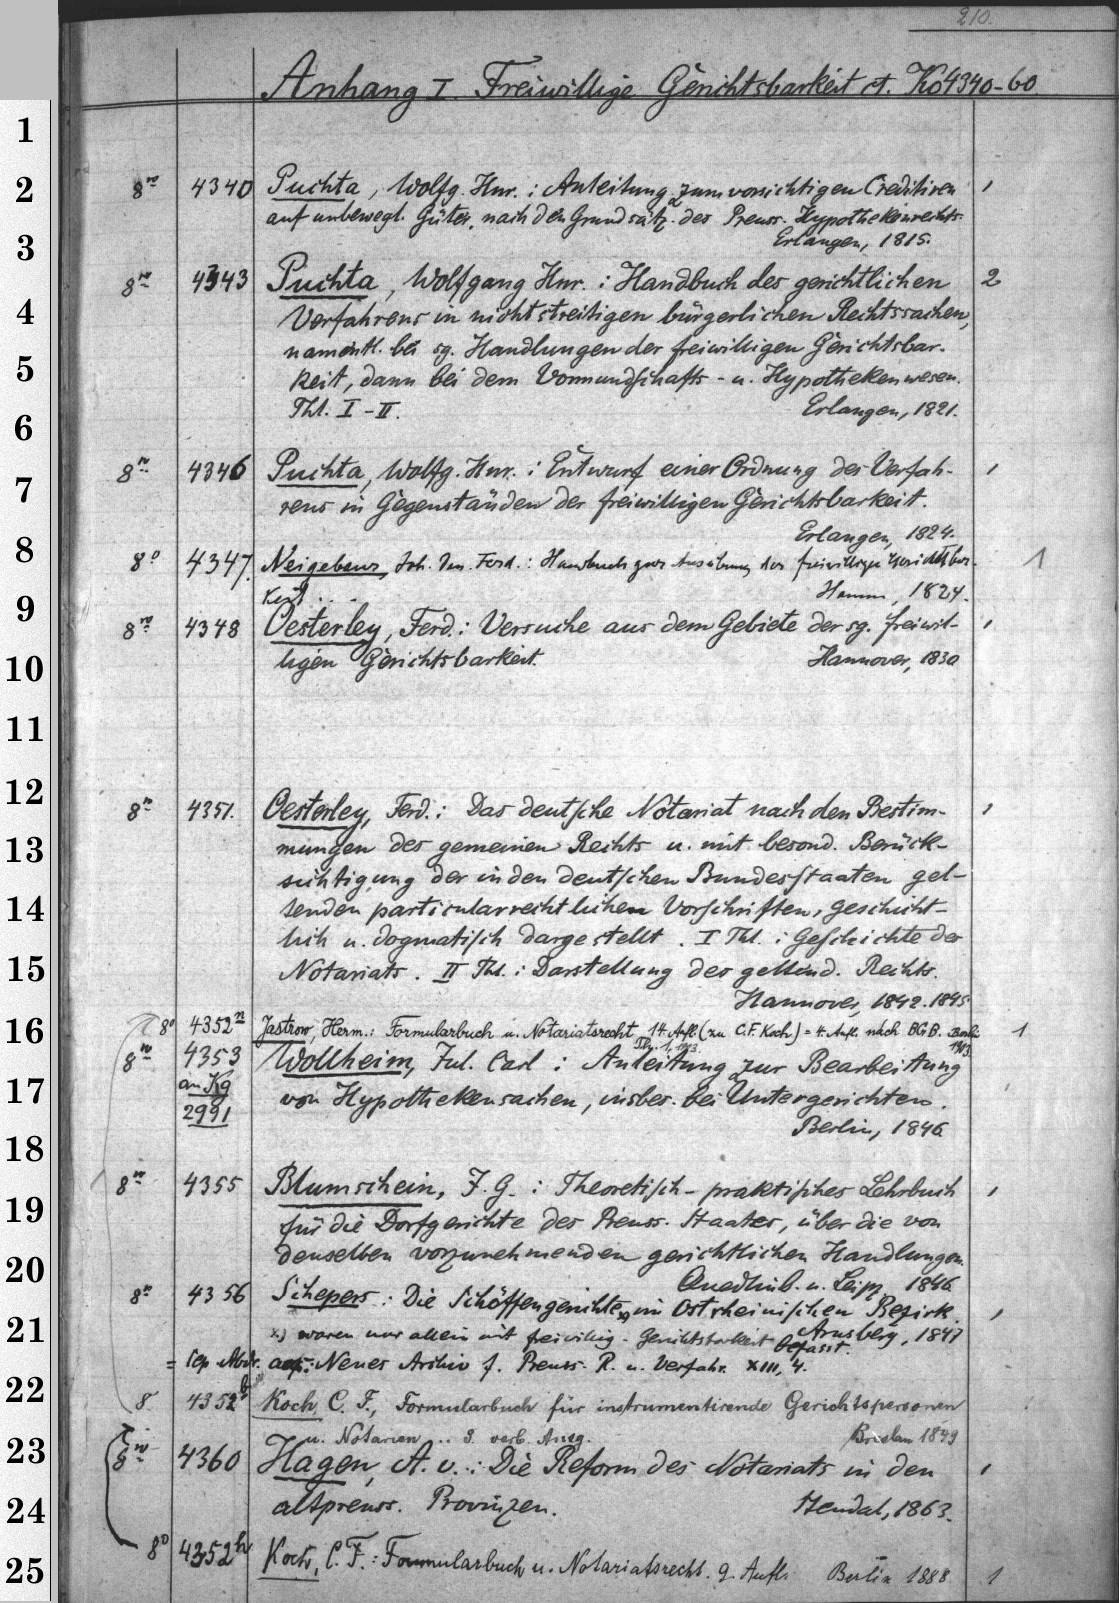 210.
Anhang I. Freiwillige Gerichtsbarkeit ct. Ko 4340-60.
1
2 8° 4340 Puchta, Wolfg. Hnr.: Anleitung zum vorsichtigen Creditiren 1
auf unbewegl. Güter, nach den Grundsätz. des Preuss. Hypothekenrechts.
3 Erlangen, 1815.
8° 4343 Puchta, Wolfgang Hnr.: Handbuch des gerichtlichen 2
4 Verfahrens in nicht streitigen bürgerlichen Rechtssachen,
namentl. bei sg. Handlungen der freiwilligen Gerichtsbar-
5 keit, dann bei dem Vormundschafts- u. Hypothekenwesen.
Thl. I-II. Erlangen, 1821.
6
8° 4346 Puchta, Wolfg. Hnr.: Entwurf einer Ordnung des Verfah- 1
7 rens in Gegenständen der freiwilligen Gerichtsbarkeit.
Erlangen, 1824.
8 8° 4347. Neigebaur, Joh. Dan. Ferd.: Handbuch zur Ausübung der freiwilligen Gerichtsbar- 1
keit... Hamm, 1824.
9 8° 4348 Oesterley, Ferd.: Versuche aus dem Gebiete der sg. freiwil- 1
10 ligen Gerichtsbarkeit. Hannover, 1830
11
12 8° 4351. Oesterley, Ferd.: Das deutsche Notariat nach den Bestim- 1
13 mungen des gemeinen Rechts u. mit besond. Berück-
sichtigung der in den deutschen Bundesstaaten gel-
14 tenden particularrechtlichen Vorschriften, geschicht-
lich u. dogmatisch dargestellt. I Thl.: Geschichte des
15 Notariats. II Thl.: Darstellung des geltend. Rechts.
Hannover, 1842. 1845
16 8° 4352n Jastrow, Herm.: Formularbuch u. Notariatsrecht 14. Aufl. (zu C.F. Koch) = 4. Aufl. nach BGB. Berlin 1
Th. 1. 1913. 1913.
8° 4353 Wollheim, Jul. Carl: Anleitung zur Bearbeitung
an Kg
17 von Hypothekensachen, insbes. bei Untergerichten.
2991 Berlin, 1846
18
8° 4355 Blumschein, F. G.: Theoretisch-praktisches Lehrbuch 1
19 für die Dorfgerichte des Preuss. Staates, über die von
denselben vorzunehmenden gerichtlichen Handlungen.
20 Quedlinb. u. Leipz. 1846
8° 4356 Schepers: Die Schöffengerichte x) im Ostrheinischen Bezirk. 1
Arnsberg, 1847
21 x) waren nur allein mit freiwillig. Gerichtsbarkeit befasst.
= sep. Abdr. aus: Neues Archiv f. Preuss. R. u. Verfahr. XIII, 4.
22 8° 4352b Koch, C. F., Formularbuch für instrumentirende Gerichtspersonen
u. Notarien .. 3. verb. Ausg. Breslau 1849
23 8° 4360 Hagen, A. v.: Die Reform des Notariats in den 1
24 altpreuss. Provinzen. Stendal, 1863.
25 8° 4352h Koch, C. F.: Formularbuch u. Notariatsrecht. 9. Aufl. Berlin 1888 1